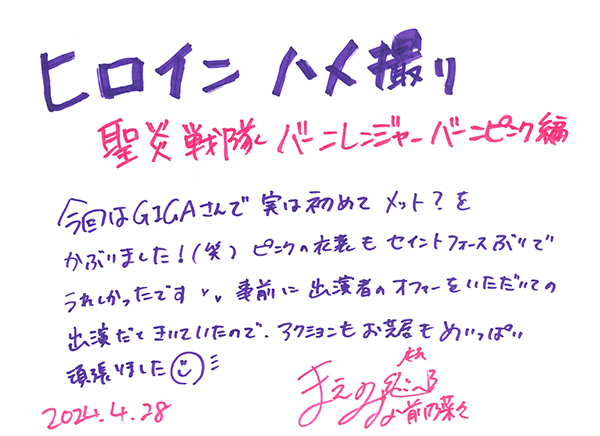 ヒロイン ハメ撮り
聖炎戦隊 バーンレンジャー バーンピンク編
今回はGIGAさんで 実は初めて メット？を
かぶりました！(笑) ピンクの衣装も セイントフォースぶりで
うれしかったです 事前に 出演者の オファーをいただいての
出演だと きいていたので、アクションも お芝居も めいっぱい
頑張りました
2024.4.28